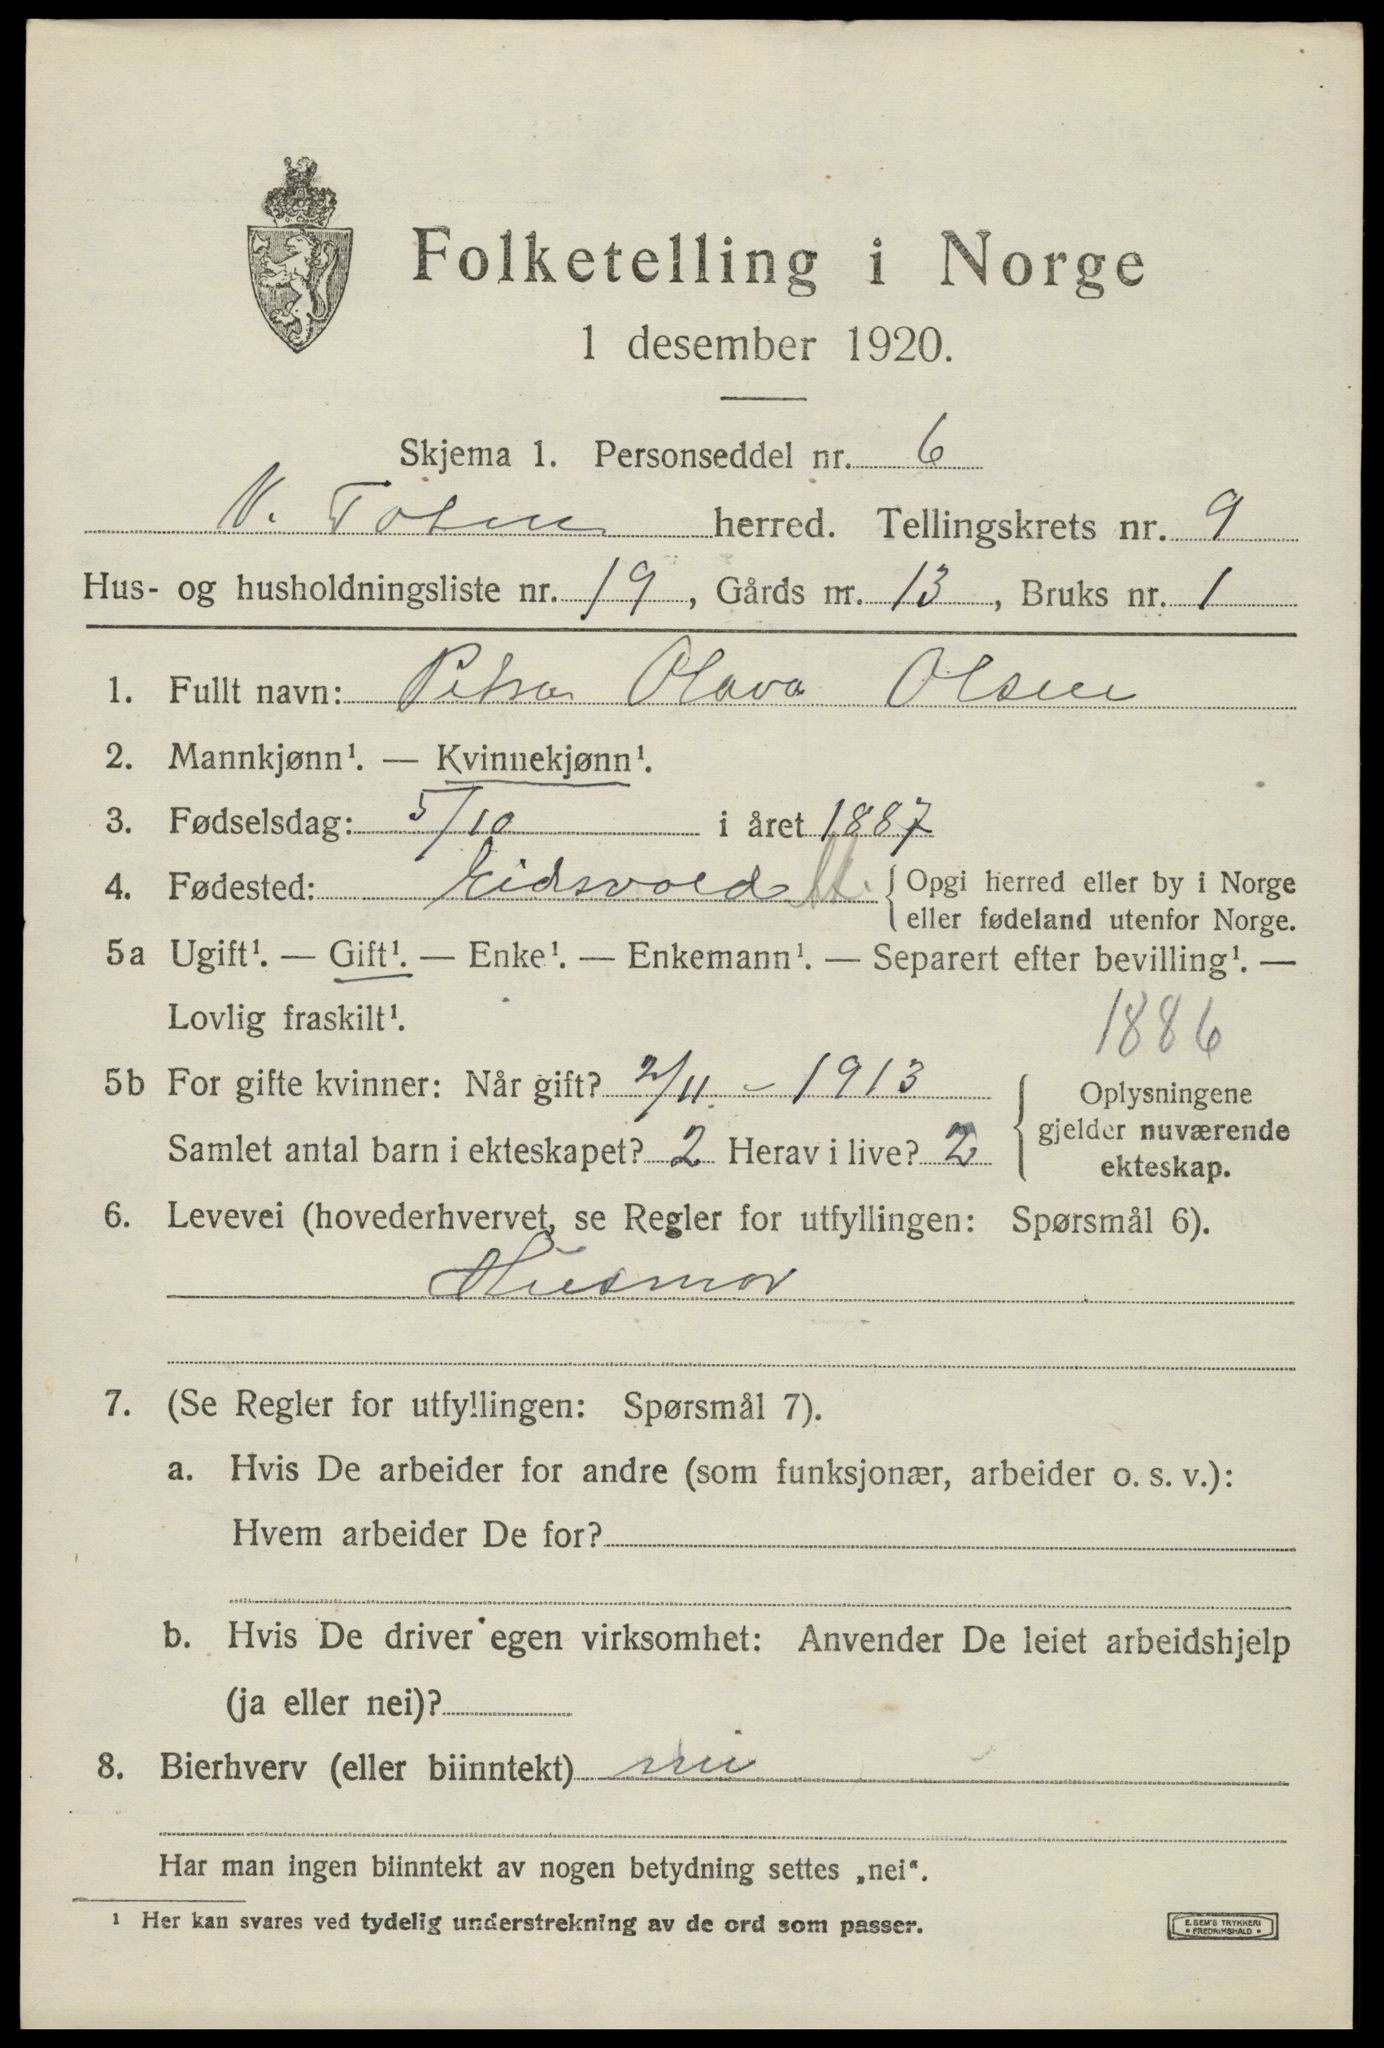 Folketelling i Norge
1 desember 1920.
Skjema 1. Personseddel nr. 6
V. Toten herred. Tellingskrets nr. 9
Hus- og husholdningsliste nr. 19, Gårds nr. 13, Bruks nr. 1
1. Fullt navn: Petra Olava Olsen
2. Mannkjønn¹. — Kvinnekjønn¹.
3. Fødselsdag: 5/10 i året 1887
4. Fødested: Eidsvold { Opgi herred eller by i Norge
eller fødeland utenfor Norge.
5a Ugift¹. — Gift¹. — Enke¹. — Enkemann¹. — Separert efter bevilling¹. —
Lovlig fraskilt¹.
1886
5b For gifte kvinner: Når gift? 2/11 - 1913
Samlet antal barn i ekteskapet? 2 Herav i live? 2
Oplysningene
gjelder nuværende
ekteskap.
6. Levevei (hovederhvervet, se Regler for utfyllingen: Spørsmål 6).
Husmor
7. (Se Regler for utfyllingen: Spørsmål 7).
a. Hvis De arbeider for andre (som funksjonær, arbeider o. s. v.):
Hvem arbeider De for?
b. Hvis De driver egen virksomhet: Anvender De leiet arbeidshjelp
(ja eller nei)?
8. Bierhverv (eller biinntekt) nei
Har man ingen biinntekt av nogen betydning settes „nei“.
¹ Her kan svares ved tydelig understrekning av de ord som passer.
E. SEM'S TRYKKERI
• FREDRIKSHALD •